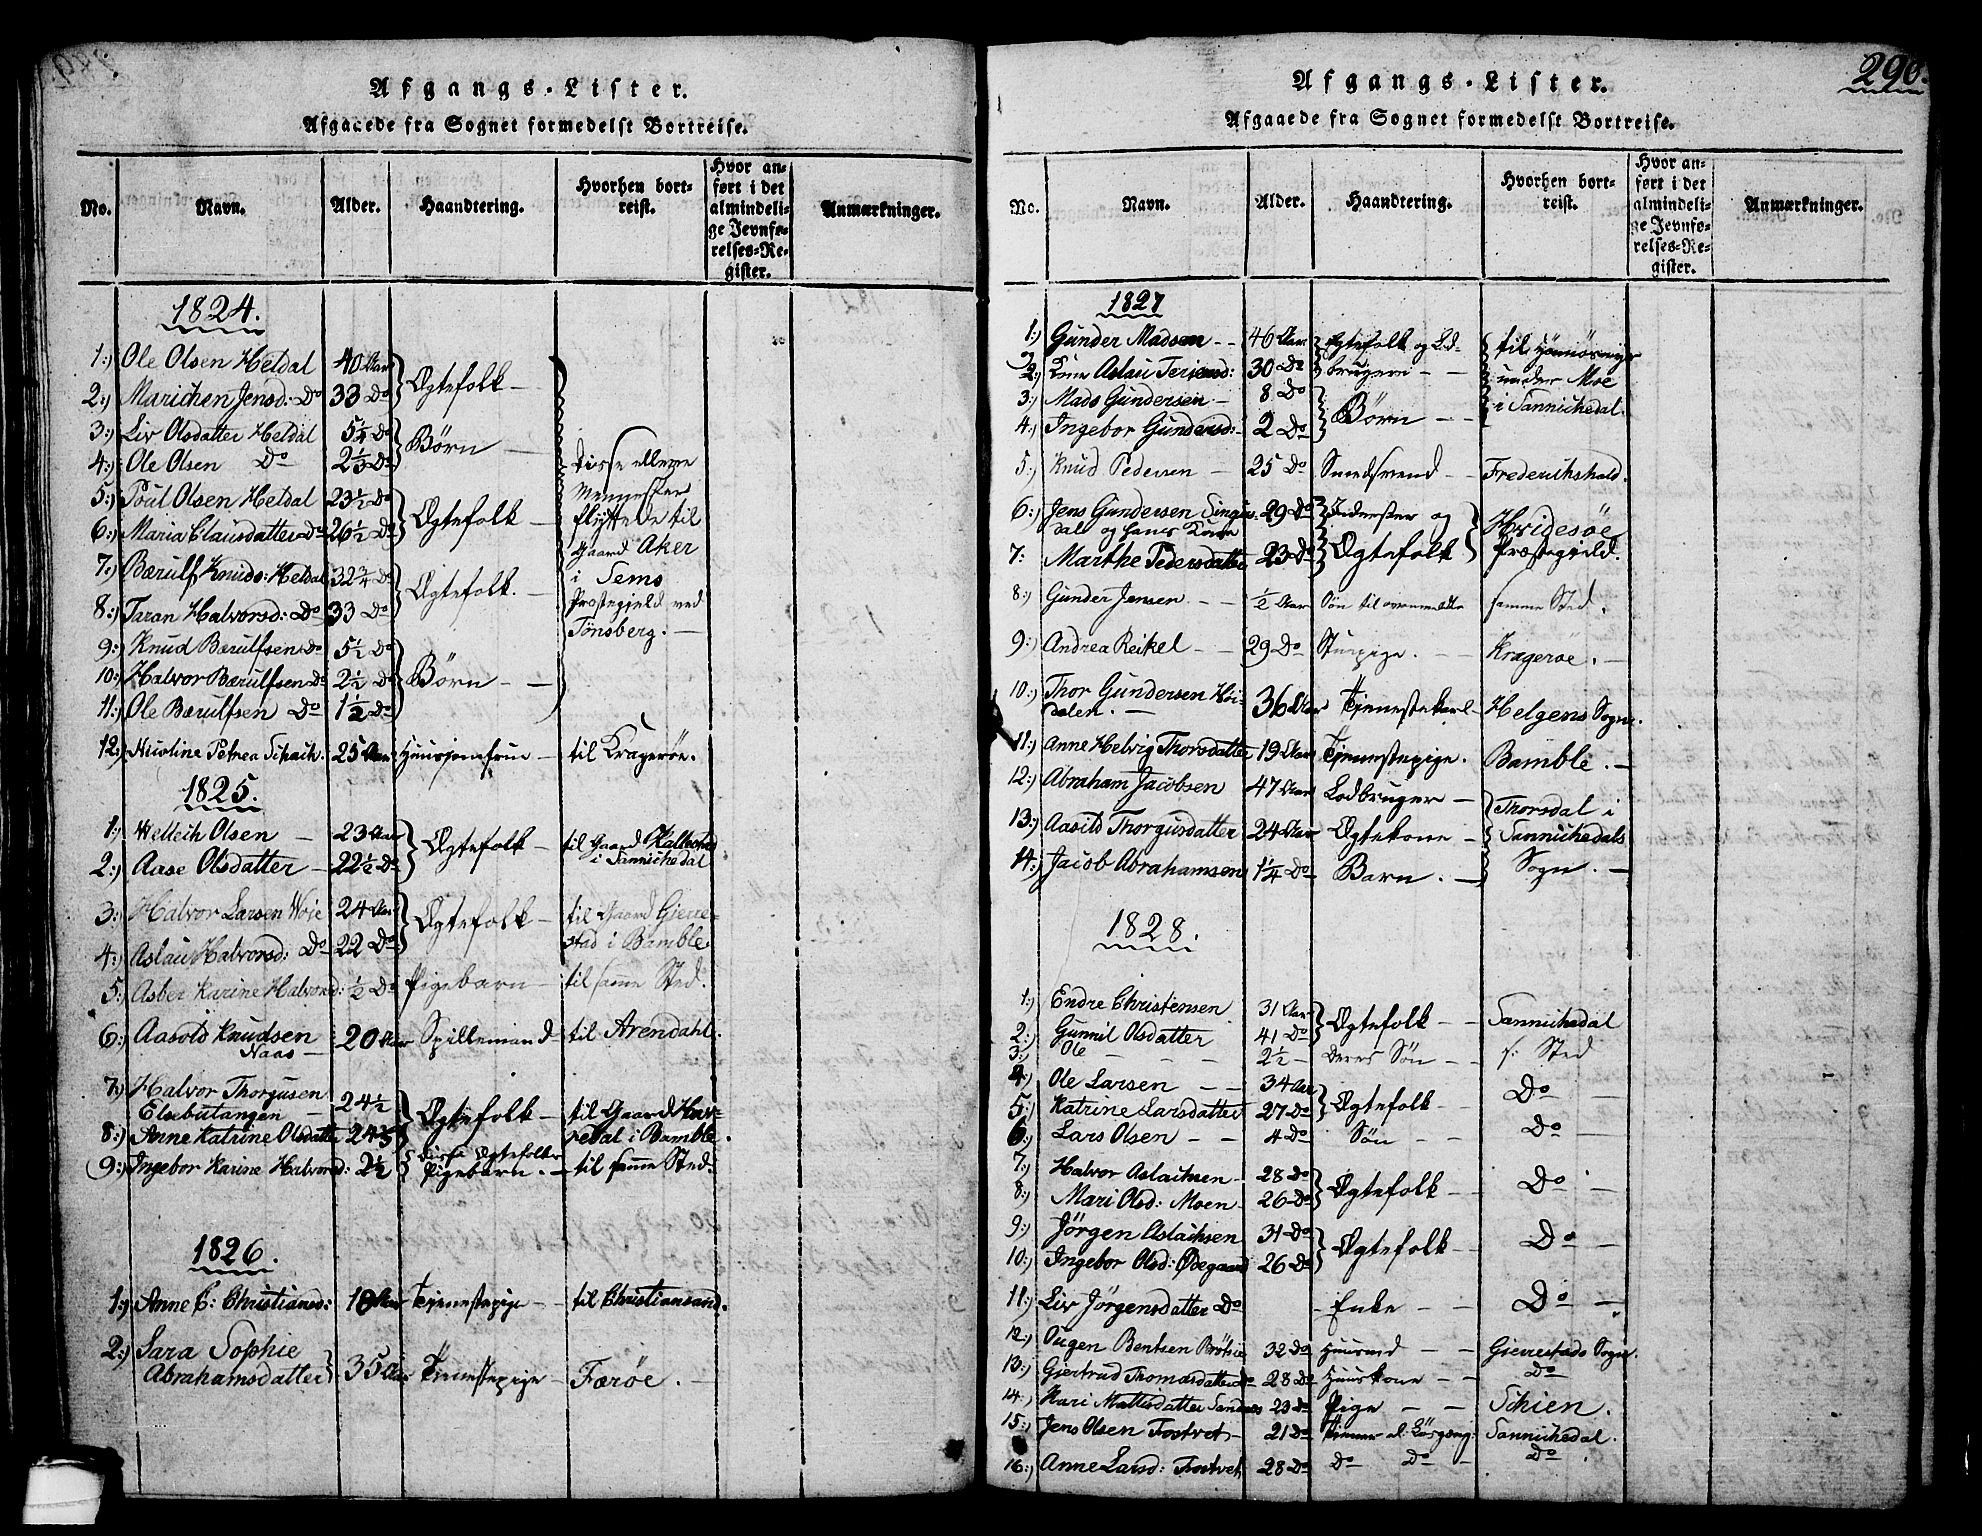 Afgangs-Lister.
Afgaaede fra Sognet formedelst Bortreise.
No. Navn. Alder. Haandtering. Hvorhen bortreist. Hvor anført i det almindelige Jevnførelses-Register. Anmærkninger.
1824.
1:) Ole Olsen Heldal 40 Aar Ægtefolk
2:) Marichen Jensd: Do 33 Do
3:) Liv Olsdatter Heldal 5 1/4 Do Børn
4:) Ole Olsen Do 2 2/3 Do
5:) Poul Olsen Heldal 23 1/2 Do Ægtefolk
6:) Maria Clausdatter Do 26 1/2 Do
7:) Bærulf Knuds: Heldal 32 3/4 Do Ægtefolk.
8:) Taran Halvorsd: Do 33 Do
9:) Knud Bærulfsen Do 5 1/2 Do
10:) Halvor Bærulfsen Do 2 1/2 Do Børn
11:) Ole Bærulfsen Do 1 1/2 Do
Disse elleve
Mennesker
flyttede til
Gaard Aker
i Sems
Præstegjeld ved
Tønsberg.
12:) Nicoline Petrea Schach. 25 Aar Huusjomfrue til Kragerøe.
1825.
1:) Wetleih Olsen 23 Aar Ægtefolk til Gaard
2:) Aase Olsdatter 22 1/2 Do i Sannichedal
3:) Halvor Larsen Woie 24 Aar Ægtefolk til Gaard Gierre-
4:) Aslau Halvorsd: Do 22 Do stad i Bamble.
5:) Asber Karine Halvorsd: 1/2 Do Pigebarn til samme Sted.
6:) Aasold Knudsen 20 Aar Spillemand til Arendahl.
Naas
7:) Halvor Thorgusen
Elsebutangen 24 1/2 Ægtefolk til Gaard
8:) Anne Katrine Olsdatter i Bamble.
9:) Ingebor Karine Halvorsd: 2 1/2 disse Ægtefolks Pigebarn. til samme Sted.
1826.
1:) Anne C: Christiansd: 18 Aar Tjenestepige til Christiansand.
2:) Sara Sophie
Abrahamsdatter 35 Aar Tjenestepige Færøe.
290.
Afgangs-Lister.
Afgaaede fra Sognet formedelst Bortreise.
No. Navn. Alder. Haandtering. Hvorhen bortreist. Hvor anført i det almindelige Jevnførelses-Register. Anmærkninger.
1827
1:) Gunder Madsen 46 Aar Ægtefolk og Lod- til
2:) Kone Aslau Terjensd: 30 Do brugere under Moe
3:) Mads Gundersen 8 Do Børn i Sannichedal.
4:) Ingebor Gundersd: 2 Do
5:) Knud Pedersen 25 Do Smedsvend Frederikshald.
6:) Jens Gundersen Singus- 29 Do Inderster og Hvidesøe
dal og hans Kone
7: Marthe Pedersdatter 23 Do Ægtefolk Præstegjeld.
8:) Gunder Jensen 1/2 Aar Søn til ovenmeldte samme Sted.
9:) Andrea Reikel 29 Do Stuepige. Kragerøe.
10:) Thor Gundersen Høi-
dalen. 36 Aar Tjenestekarl Helgens Sogn.
11:) Anne Helvig Thorsdatter 19 Aar Tjenestepige. Bamble.
12:) Abraham Jacobsen 47 Aar Lodbruger Thorsdal i
13:) Aasild Thorgusdatter 24 Aar Ægtekone Sannichedals
14:) Jacob Abrahamsen 1 1/4 Do Barn. Sogn.
1828.
1:) Endre Christensen 31 Aar Ægtefolk Sannichedal
2:) Gunnil Olsdatter 41 Do
3:) Ole 2 1/2 Deres Søn s: Sted
4:) Ole Larsen 34 Aar Ægtefolk Do
5:) Katrine Larsdatter 27 Do
6:) Lars Olsen 4 Do Søn Do
7:) Halvor Aslachsen 28 Do Ægtefolk Do
8:) Mari Olsd: Moen 26 Do
9:) Jörgen Aslachsen 31 Do Ægtefolk Do
10:) Ingebor Olsd: Ødegaard 26 Do
11:) Liv Jörgensdatter Do Enke Do
12:) Ougen Bentsen 32 Do Huusmd Gierrestads Sogn.
13:) Giertrud Thomasdatter Do 28 Do Huuskone Do
14:) Kari Mattisdatter Sandnes 23 Do Pige Schien.
15:) Jens Olsen Tostvet 21 Do Sannichedal.
16:) Anne Larsd: Tostvet 28 Do Do Do Do